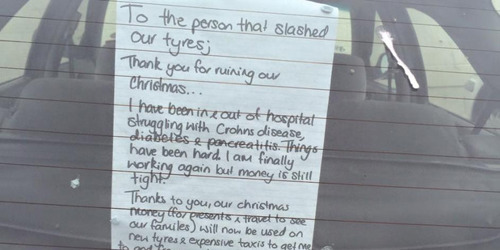 To the person that slashed
our tyres;
Thank you for ruining our
Christmas...
I have been in & out of hospital
struggling with Crohns disease,
diabetes & pancreatitis. Things
have been hard. I am finally
working again but money is still
tight.
Thanks to you, our christmas
money (for presents & travel to see
our familes) will now be used on
new tyres & expensive taxis to get me
to and